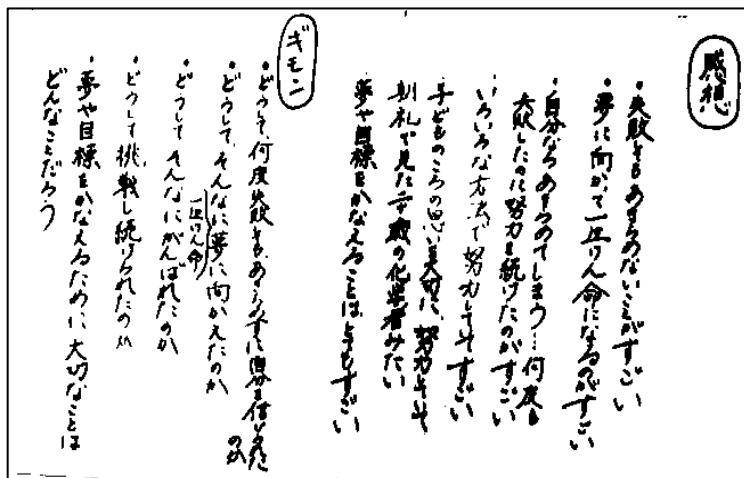 感想
・失敗してもあきらめないことがすごい
・夢に向かって一生けん命になるのがすごい
・自分ならあきらめてしまう…何度も
大失敗したのに努力を続けたのがすごい
いろいろな方法で努力しててすごい
子どものころの思いを大切に、努力していて
朝礼で見た二十歳の化学者みたい
夢や目標をかなえることはとてもすごい
ギモン
・どうして、何度失敗してもあきらめずに自分を信じれた
のか
・どうして、そんなに夢に向かえたのか
一生けん命
・どうしてそんなにがんばれたのか
・どうして挑戦し続けられたのか
・夢や目標をかなえるために大切なことは
どんなことだろう